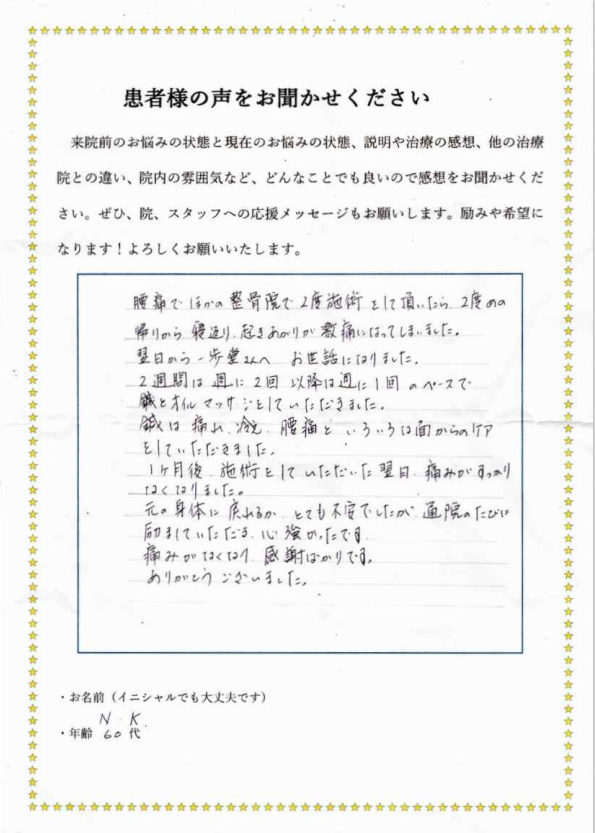 患者様の声をお聞かせください
来院前のお悩みの状態と現在のお悩みの状態、説明や治療の感想、他の治療
院との違い、院内の雰囲気など、どんなことでも良いので感想をお聞かせくだ
さい。ぜひ、院、スタッフへの応援メッセージもお願いします。励みや希望に
なります！よろしくお願いいたします。
腰痛でほかの整骨院で2度施術をして頂いたら、2度めの
帰りから寝返り、起きあがりが激痛になってしまいました。
翌日から一歩堂さんへ お世話になりました。
2週間は週に2回 以降は週に1回 のペースで
鍼とオイルマッサージをしていただきました。
鍼は 痛み、冷え、腰痛といろいろな面からのケア
をしていただきました。
1ヶ月後、施術をしていただいた翌日、痛みがすっかり
なくなりました。
元の身体に戻れるか、とても不安でしたが、通院のたびに
励ましていただき、心強かったです。
痛みがなくなり、感謝ばかりです。
ありがとうございました。
・お名前（イニシャルでも大丈夫です）
N.K.
・年齢 60 代